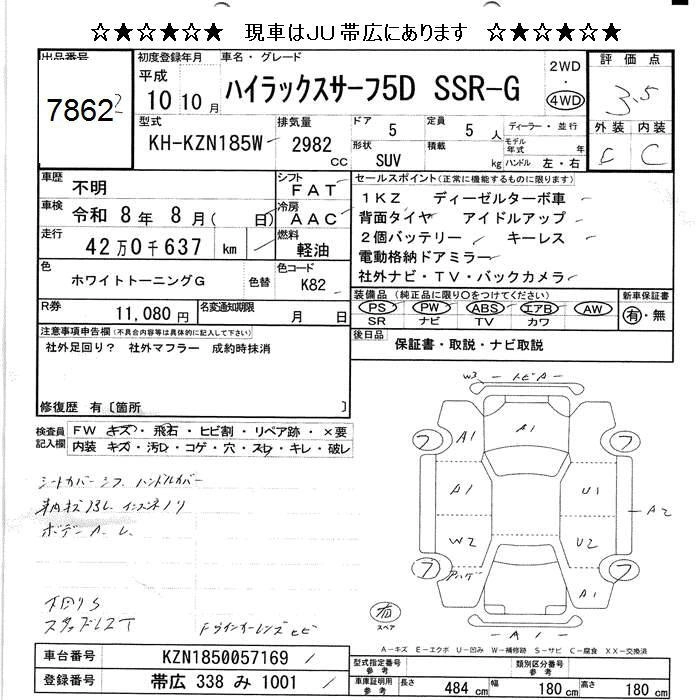 ☆★☆★☆★ 現車はJU帯広にあります ☆★☆★☆★
出品番号
7862
初度登録年月
平成
10年10月
車名・グレード
ハイラックスサーフ5D SSR-G
2WD
・
4WD
評価点
3.5
外装 内装
C C
型式
KH-KZN185W
排気量
2982 cc
ドア 5
定員 5 人
形状 SUV
積載 kg
ディーラー・並行
モデル年式 年
ハンドル 左・右
車歴 不明
シフト FAT
車検 令和 8年 8月( 日)
冷房 AAC
走行 42万0千637 km
燃料 軽油
色 ホワイトトーニングG
色替
色コード K82
R券 11,080円
名変通知期限 月 日
セールスポイント(正常に機能するものに限ります)
1KZ ディーゼルターボ車
背面タイヤ アイドルアップ
2個バッテリー キーレス
電動格納ドアミラー
社外ナビ・TV・バックカメラ
装備品 (純正品に限り○をつけてください)
PS PW ABS エアB AW
SR ナビ TV カワ
新車保証書
有・無
後日品 保証書・取説・ナビ取説
注意事項申告欄(不具合内容等は具体的に記入して下さい)
社外足回り? 社外マフラー 成約時抹消
修復歴 有〔箇所 〕
検査員記入欄
FW キズ・飛石・ヒビ割・リペア跡・×要
内装 キズ・汚・コゲ・穴・スレ・キレ・破レ
シートカバー シフ ハンドルカバー
ボデーA
下回りS
スタッドレスT
Fウインカーレンズヒビ
W3 トビA
A1
A1
フ
フ
A1
U1
A2
W2
U2
フ
フ
アハゲ
A1
A1
有
スペア
A-キズ E-エクボ U-凹み W-補修跡 S-サビ C-腐食 XX-交換済
車台番号 KZN1850057169
登録番号 帯広 338 み 1001
型式指定番号 参考
類別区分番号 参考
車庫証明用 参考
長さ 484 cm
幅 180 cm
高さ 180 cm